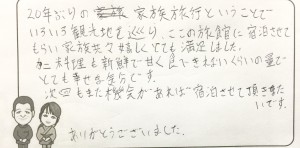 20年ぶりの 家族旅行ということで
いろいろ観光地を巡りここの旅館に宿泊させて
もらい家族共々嬉しくとても満足しました。
カニ料理も新鮮で甘く食いきれないくらいの量で
とても幸せな気分です。
次回もまた機会があれば宿泊させて頂きたい
いです。
ありがとうございました。